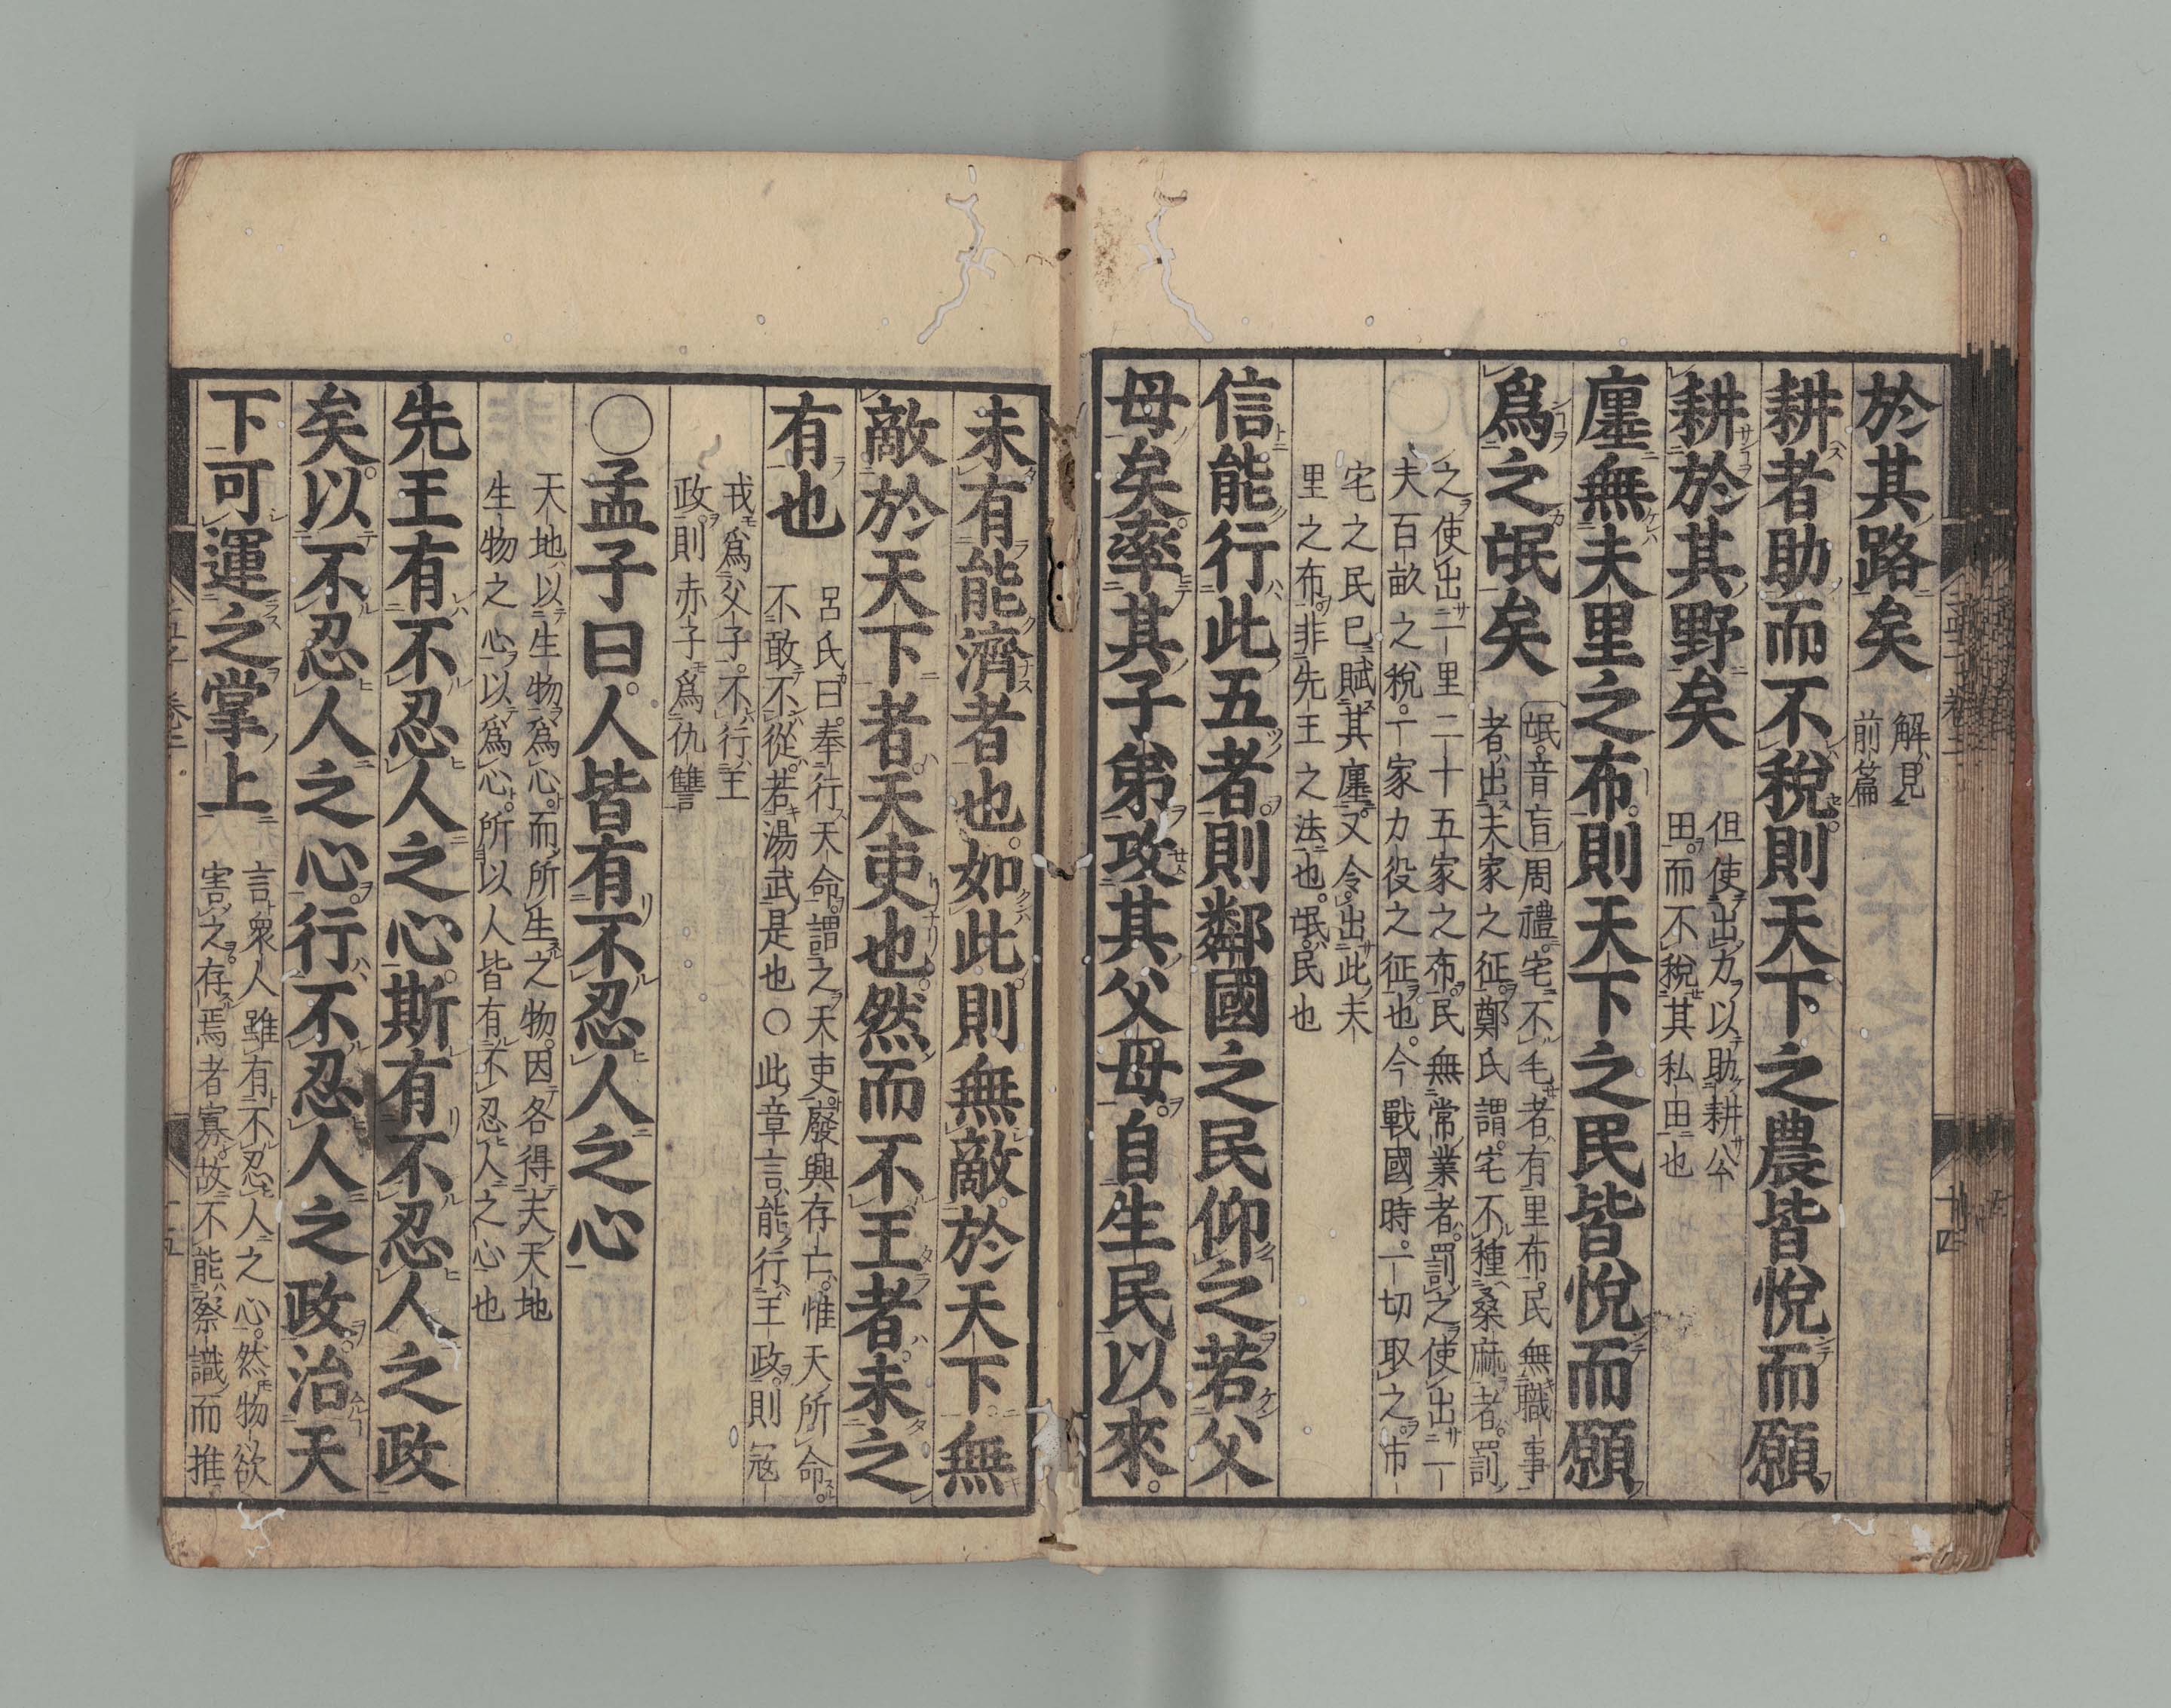 於其路矣
解見
前篇
耕者助而不稅則天下之農皆悅而願
耕於其野矣
但使出力以助耕公
田而不稅其私田也
廛無夫里之布則天下之民皆悅而願
爲之氓矣
氓音盲周禮宅不毛者有里布民無職事
者出夫家之征鄭氏謂宅不種桑麻者罰
之使出一里二十五家之布民無常業者罰之使出一
夫百畝之稅一家力役之征也今戰國時一切取之市
宅之民已賦其廛又令出此夫
里之布非先王之法也氓民也
信能行此五者則鄰國之民仰之若父
母矣率其子弟攻其父母自生民以來
未有能濟者也如此則無敵於天下無
敵於天下者天吏也然而不王者未之
有也
呂氏曰奉行天命謂之天吏廢興存亡惟天所命
不敢不從若湯武是也○此章言能行王政則寇
戎爲父子不行王
政則赤子爲仇讐
○孟子曰人皆有不忍人之心
天地以生物爲心而所生之物因各得夫天地
生物之心以爲心所以人皆有不忍人之心也
先王有不忍人之心斯有不忍人之政
矣以不忍人之心行不忍人之政治天
下可運之掌上
言衆人雖有不忍人之心然物欲
害之存焉者寡故不能察識而推